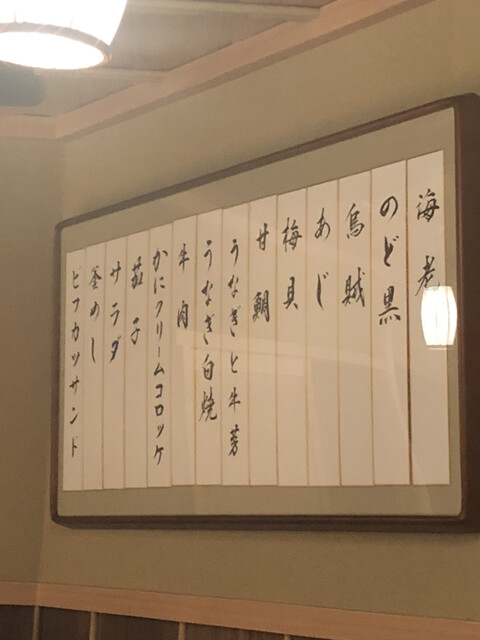 海老
のど黒
烏賊
あじ
梅貝
甘鯛
うなぎと牛蒡
うなぎ白焼
牛肉
かにクリームコロッケ
茄子
サラダ
釜めし
ビフカツサンド